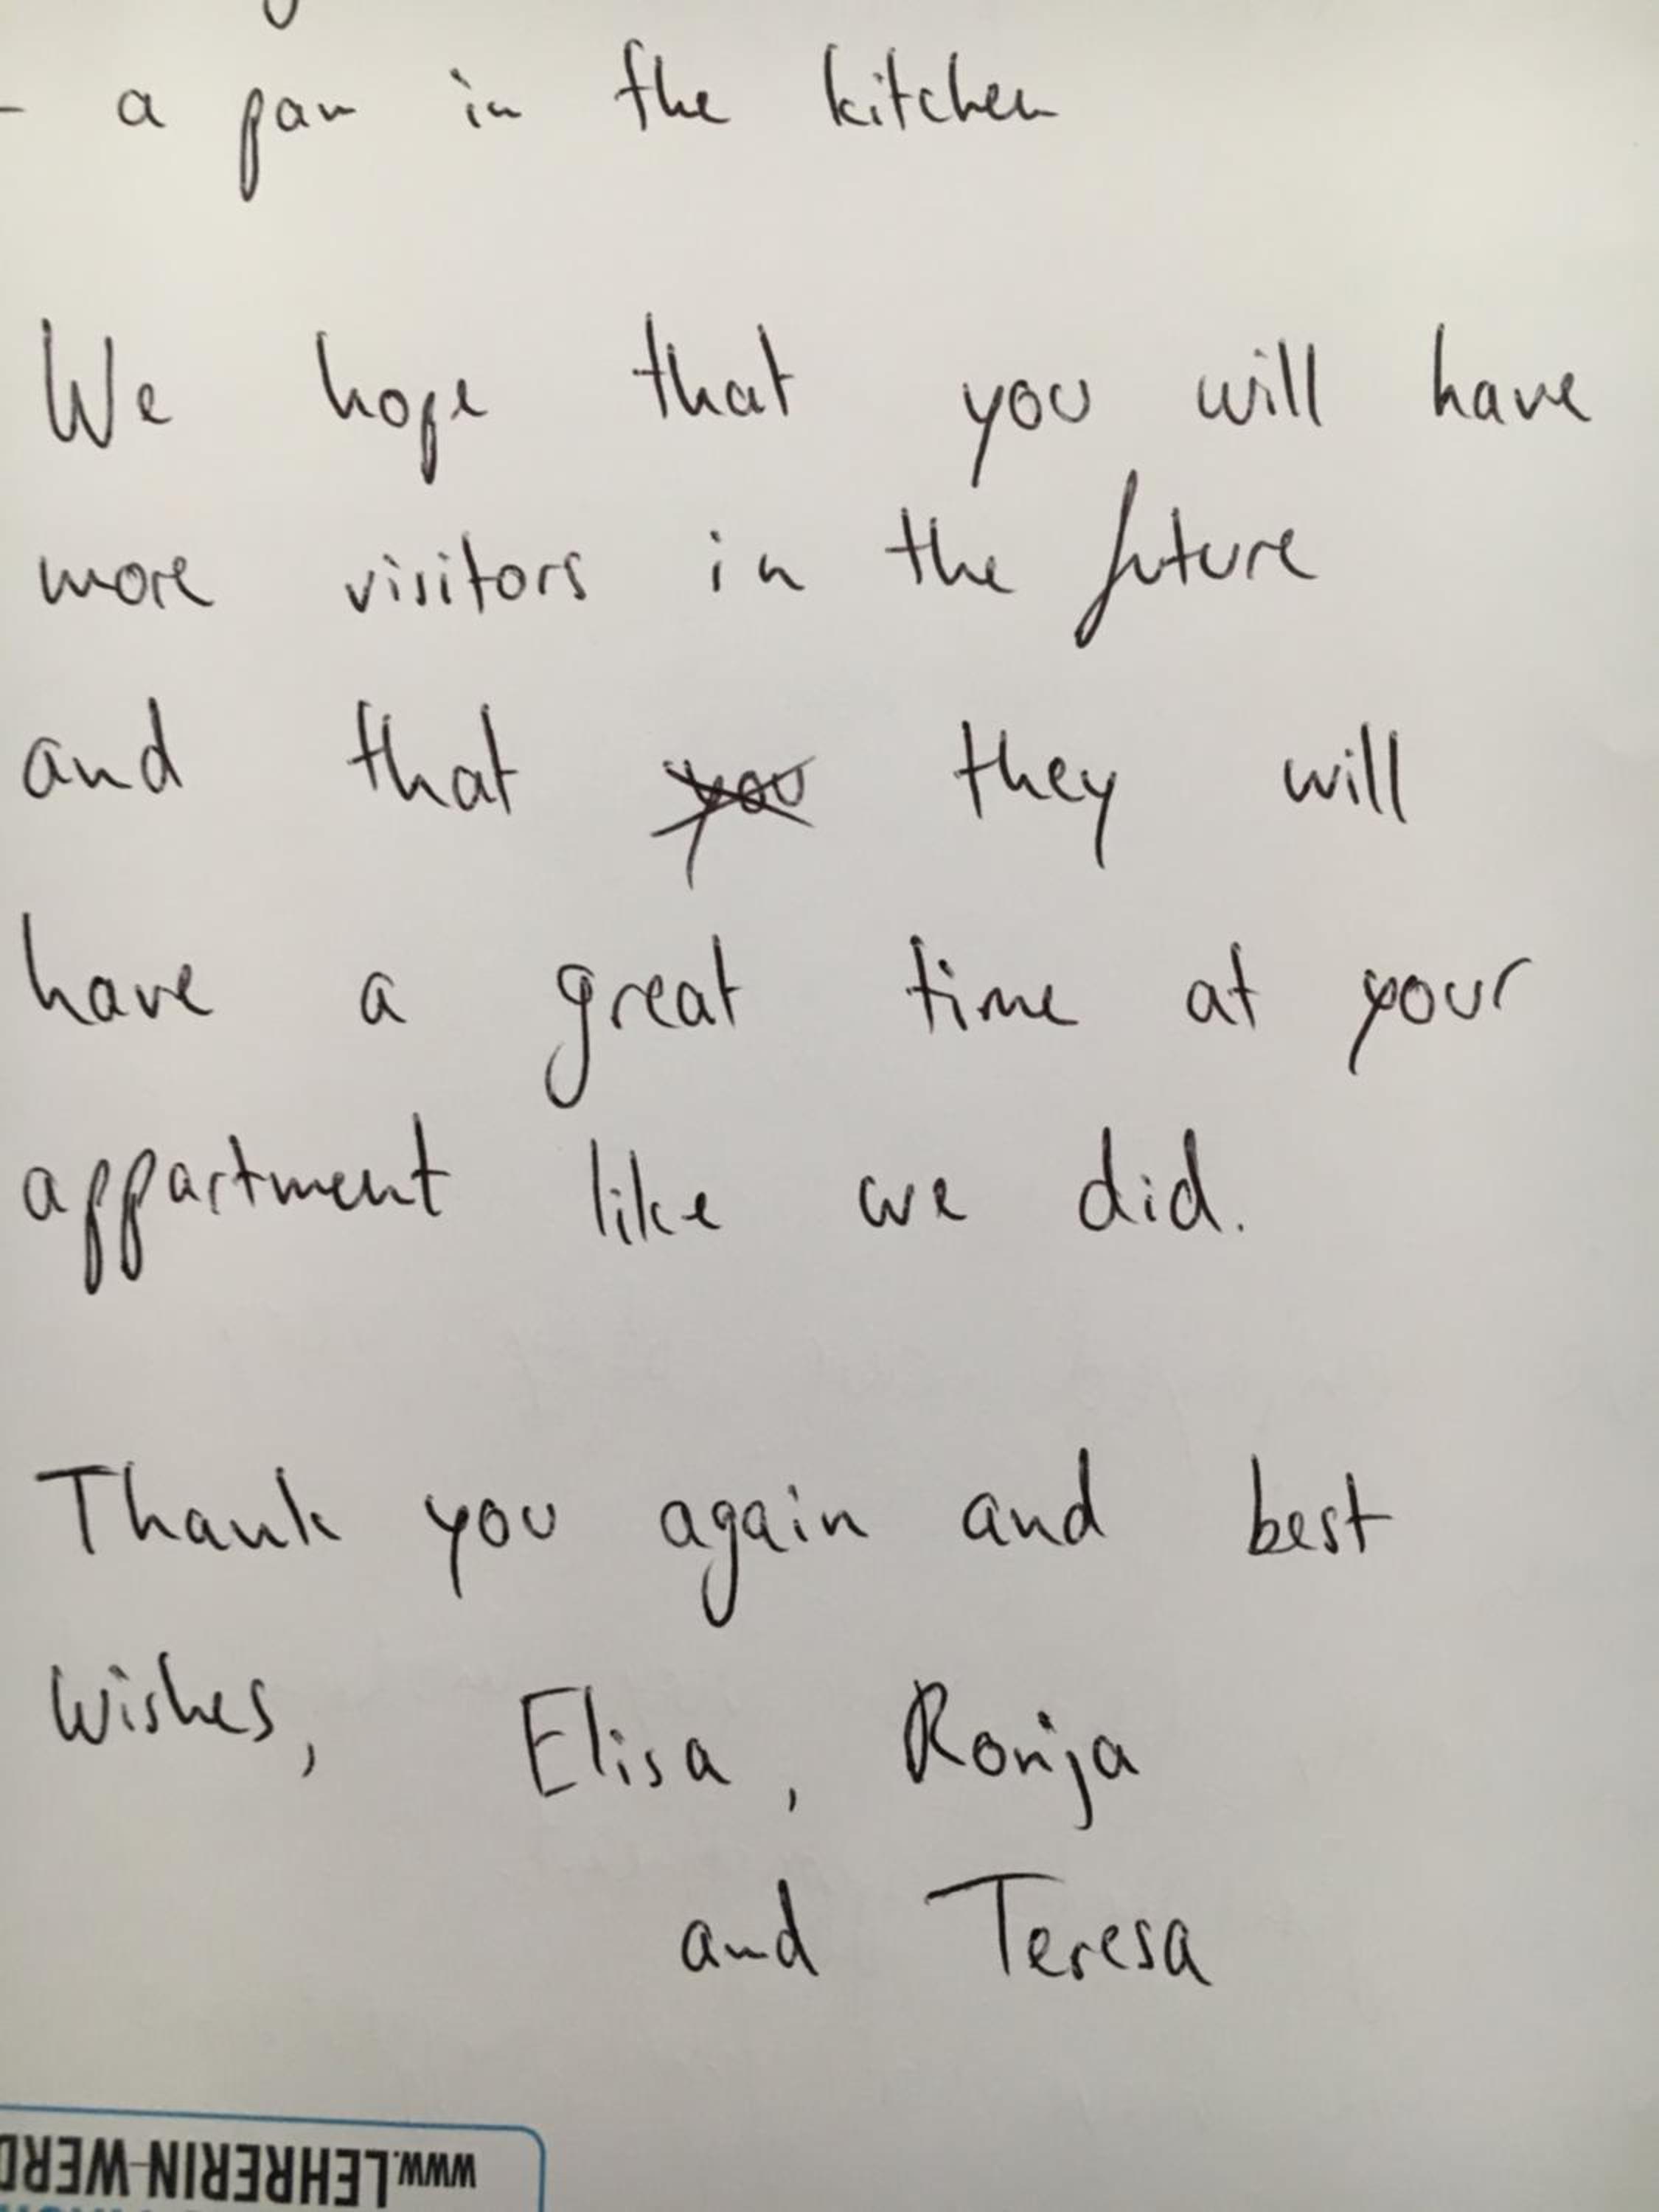 - a pan in the kitchen
We hope that you will have
more visitors in the future
and that you they will
have a great time at your
appartment like we did.
Thank you again and best
wishes, Elisa, Ronja
and Teresa
WWW.LEHRERIN-WERD